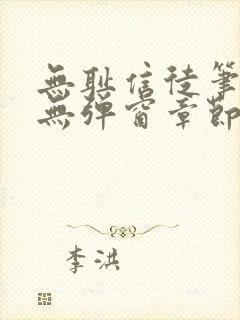 無耻信徒筆
無彈窗章節
李洪